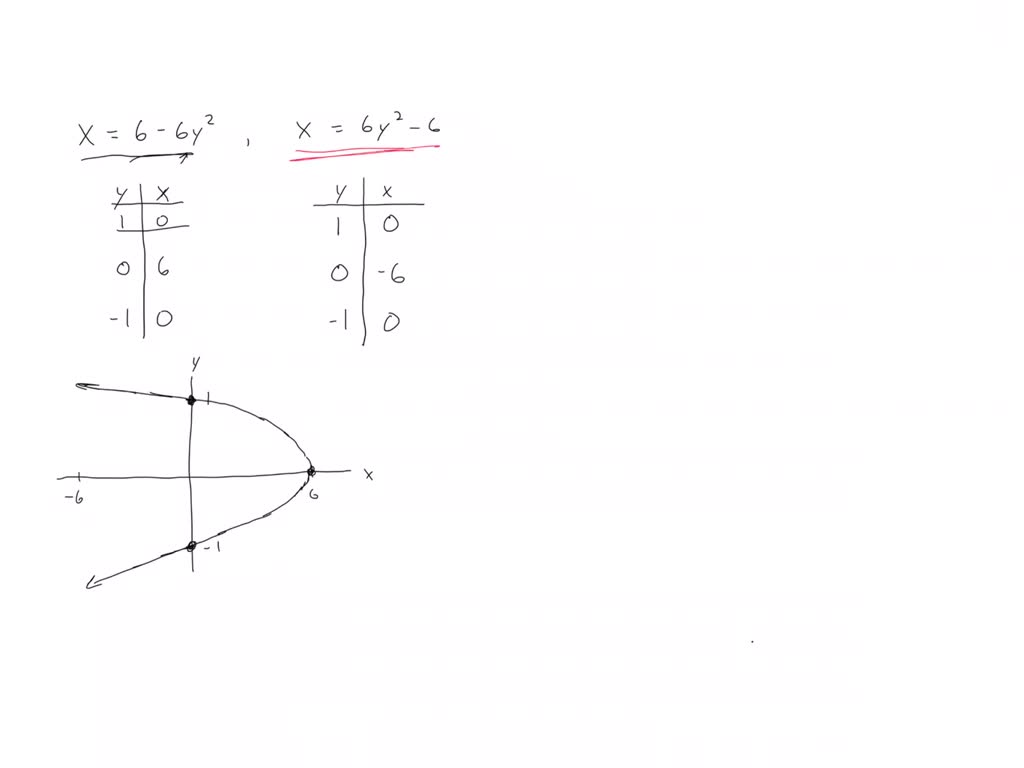 x = 6 - 6y² , x = 6y² - 6
y x y x
1 0 1 0
0 6 0 -6
-1 0 -1 0
y
1
x
-6 6
-1